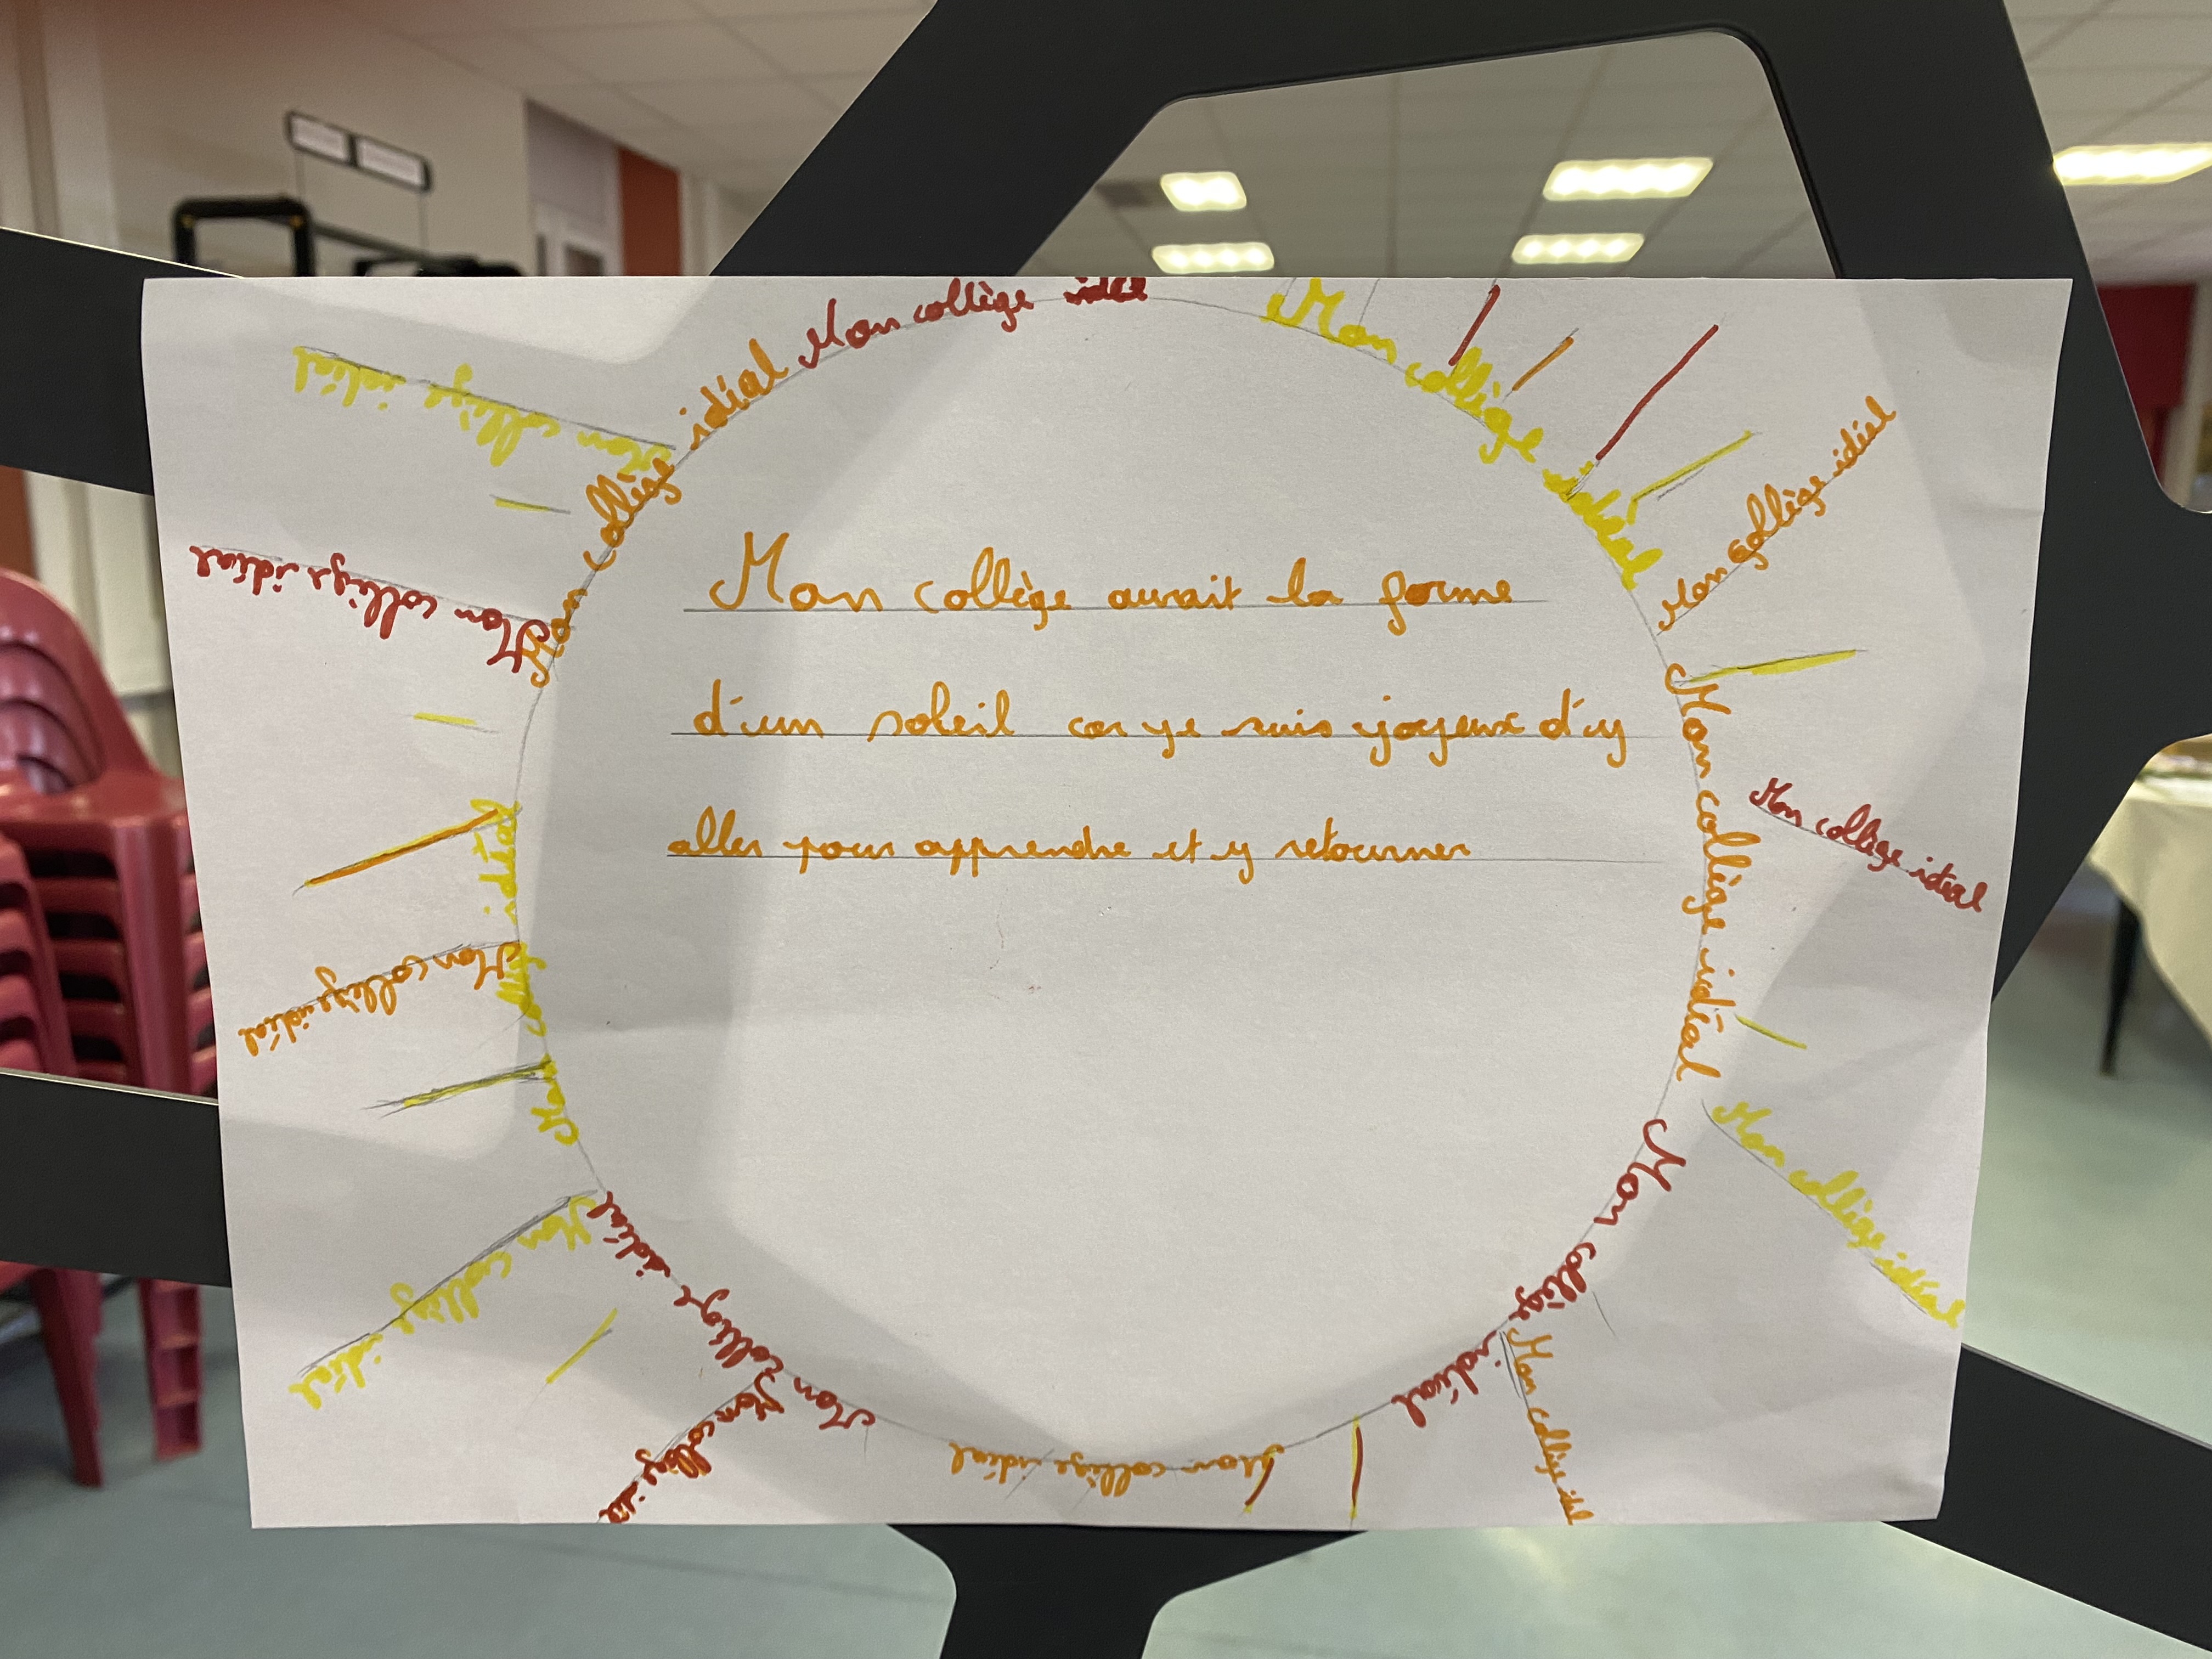 Mon collège idéal
Mon collège idéal
Mon collège idéal
Mon collège aurait la forme
d'un soleil car je suis joyeux d'y
aller pour apprendre et y retourner
Mon collège idéal
Mon collège idéal
Mon collège idéal
Mon collège idéal
Mon collège idéal
Mon collège idéal
Mon collège idéal
Mon collège idéal
Mon collège idéal
Mon collège idéal
Mon collège idéal
Mon collège idéal
Mon collège idéal
Mon collège
Mon collège